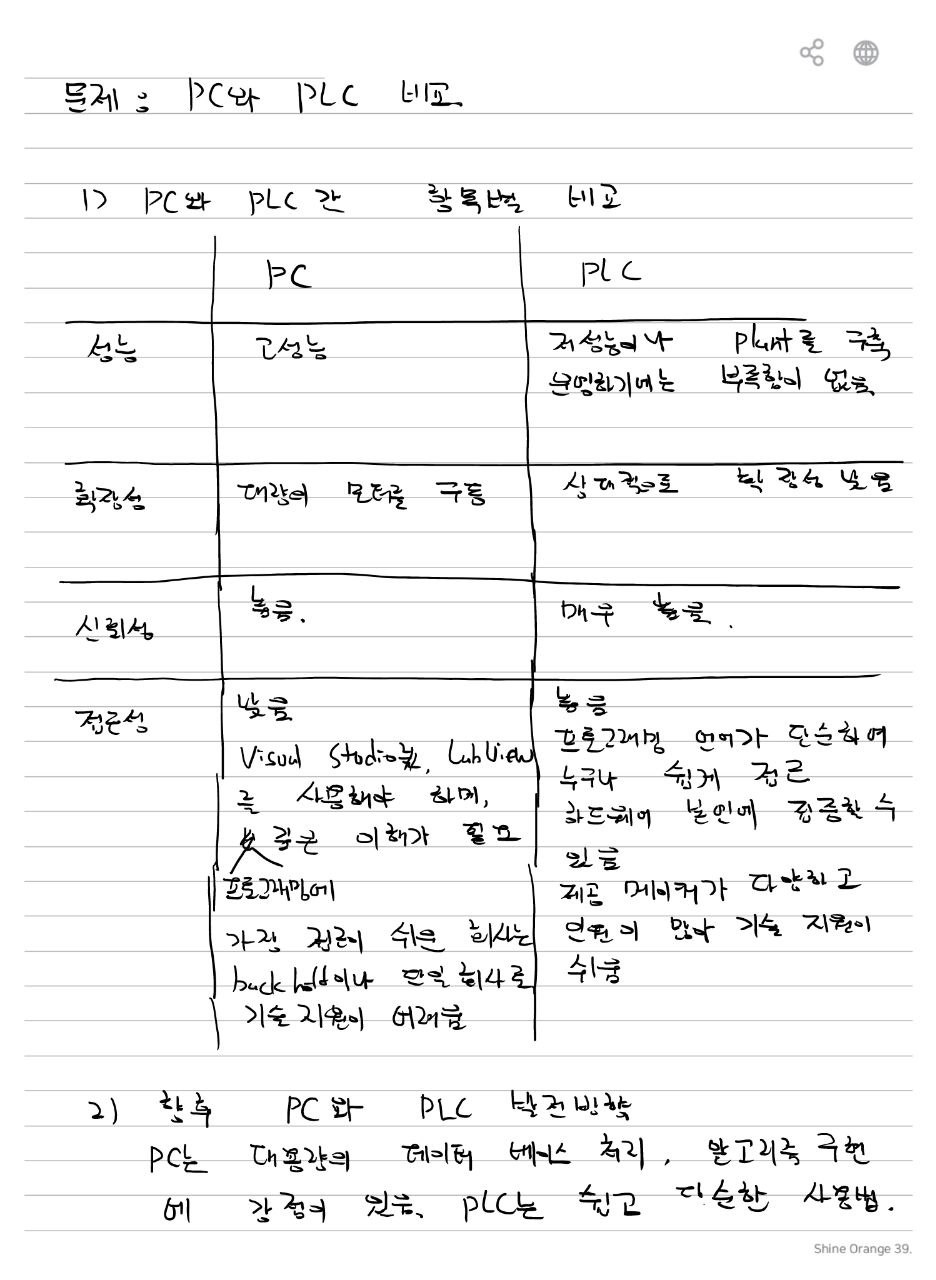 문제 : PC와 PLC 비교.
1) PC와 PLC 간 항목별 비교
PC PLC
성능 고성능 저성능이나 Plant를 구축
운영하기에는 부족함이 없음.
확장성 대량의 모터를 구동 상대적으로 확장성 낮음
신뢰성 높음. 매우 높음.
접근성 낮음
Visual Studio, LabView
를 사용해야 하며,
깊은 이해가 필요
프로그래밍에
가장 접근이 쉬운 회사는
backhoff이나 단일 회사로
기술 지원이 어려움
높음
프로그래밍 언어가 단순하여
누구나 쉽게 접근
하드웨어 본인에 집중할 수
있음
제공 메이커가 다양하고
인원이 많아 기술 지원이
쉬움
2) 향후 PC와 PLC 발전방향
PC는 대용량의 데이터 베이스 처리, 알고리즘 구현
에 강점이 있음. PLC는 쉽고 단순한 사용법.
Shine Orange 39.